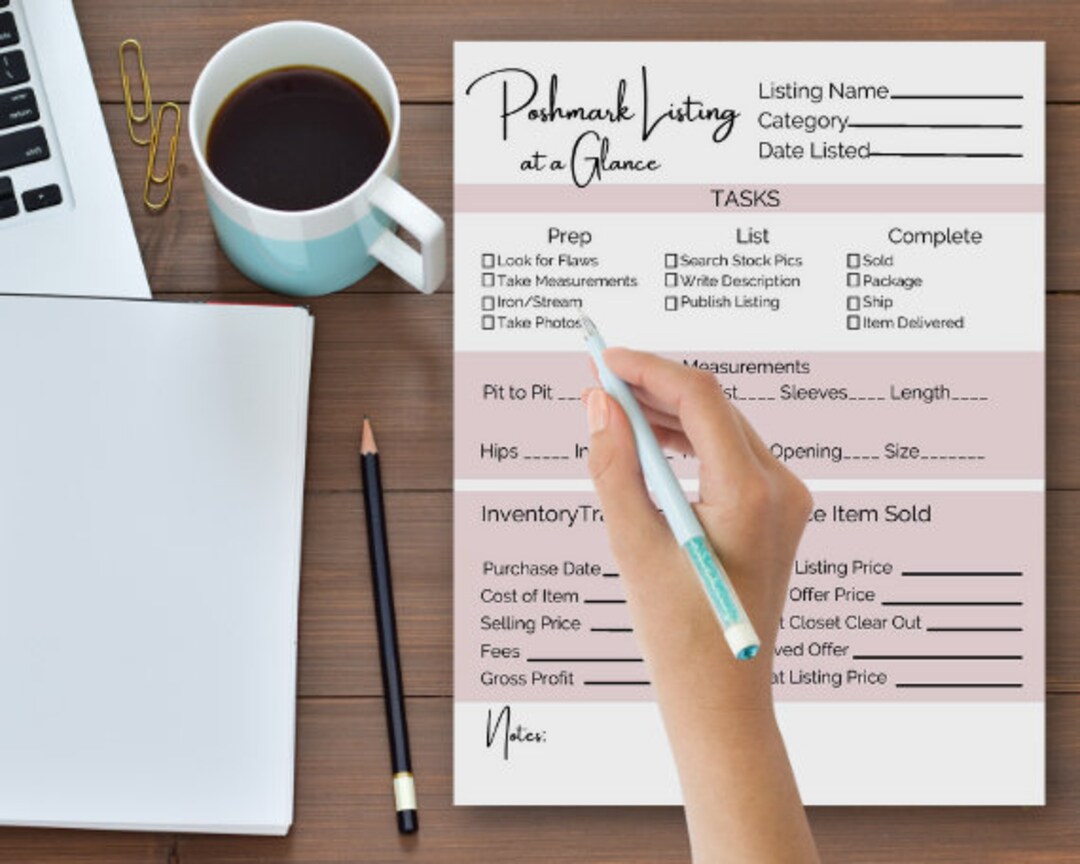 Poshmark Listing
at a Glance
Listing Name
Category
Date Listed
TASKS
Prep
Look for Flaws
Take Measurements
Iron/Stream
Take Photos
List
Search Stock Pics
Write Description
Publish Listing
Complete
Sold
Package
Ship
Item Delivered
Measurements
Pit to Pit ___ ____ Sleeves____ Length____
Hips _____ Opening____ Size_______
Item Sold
Purchase Date
Cost of Item
Selling Price
Fees
Gross Profit
Listing Price
Offer Price
Closet Clear Out
Offer
Listing Price
Notes:
return
shift